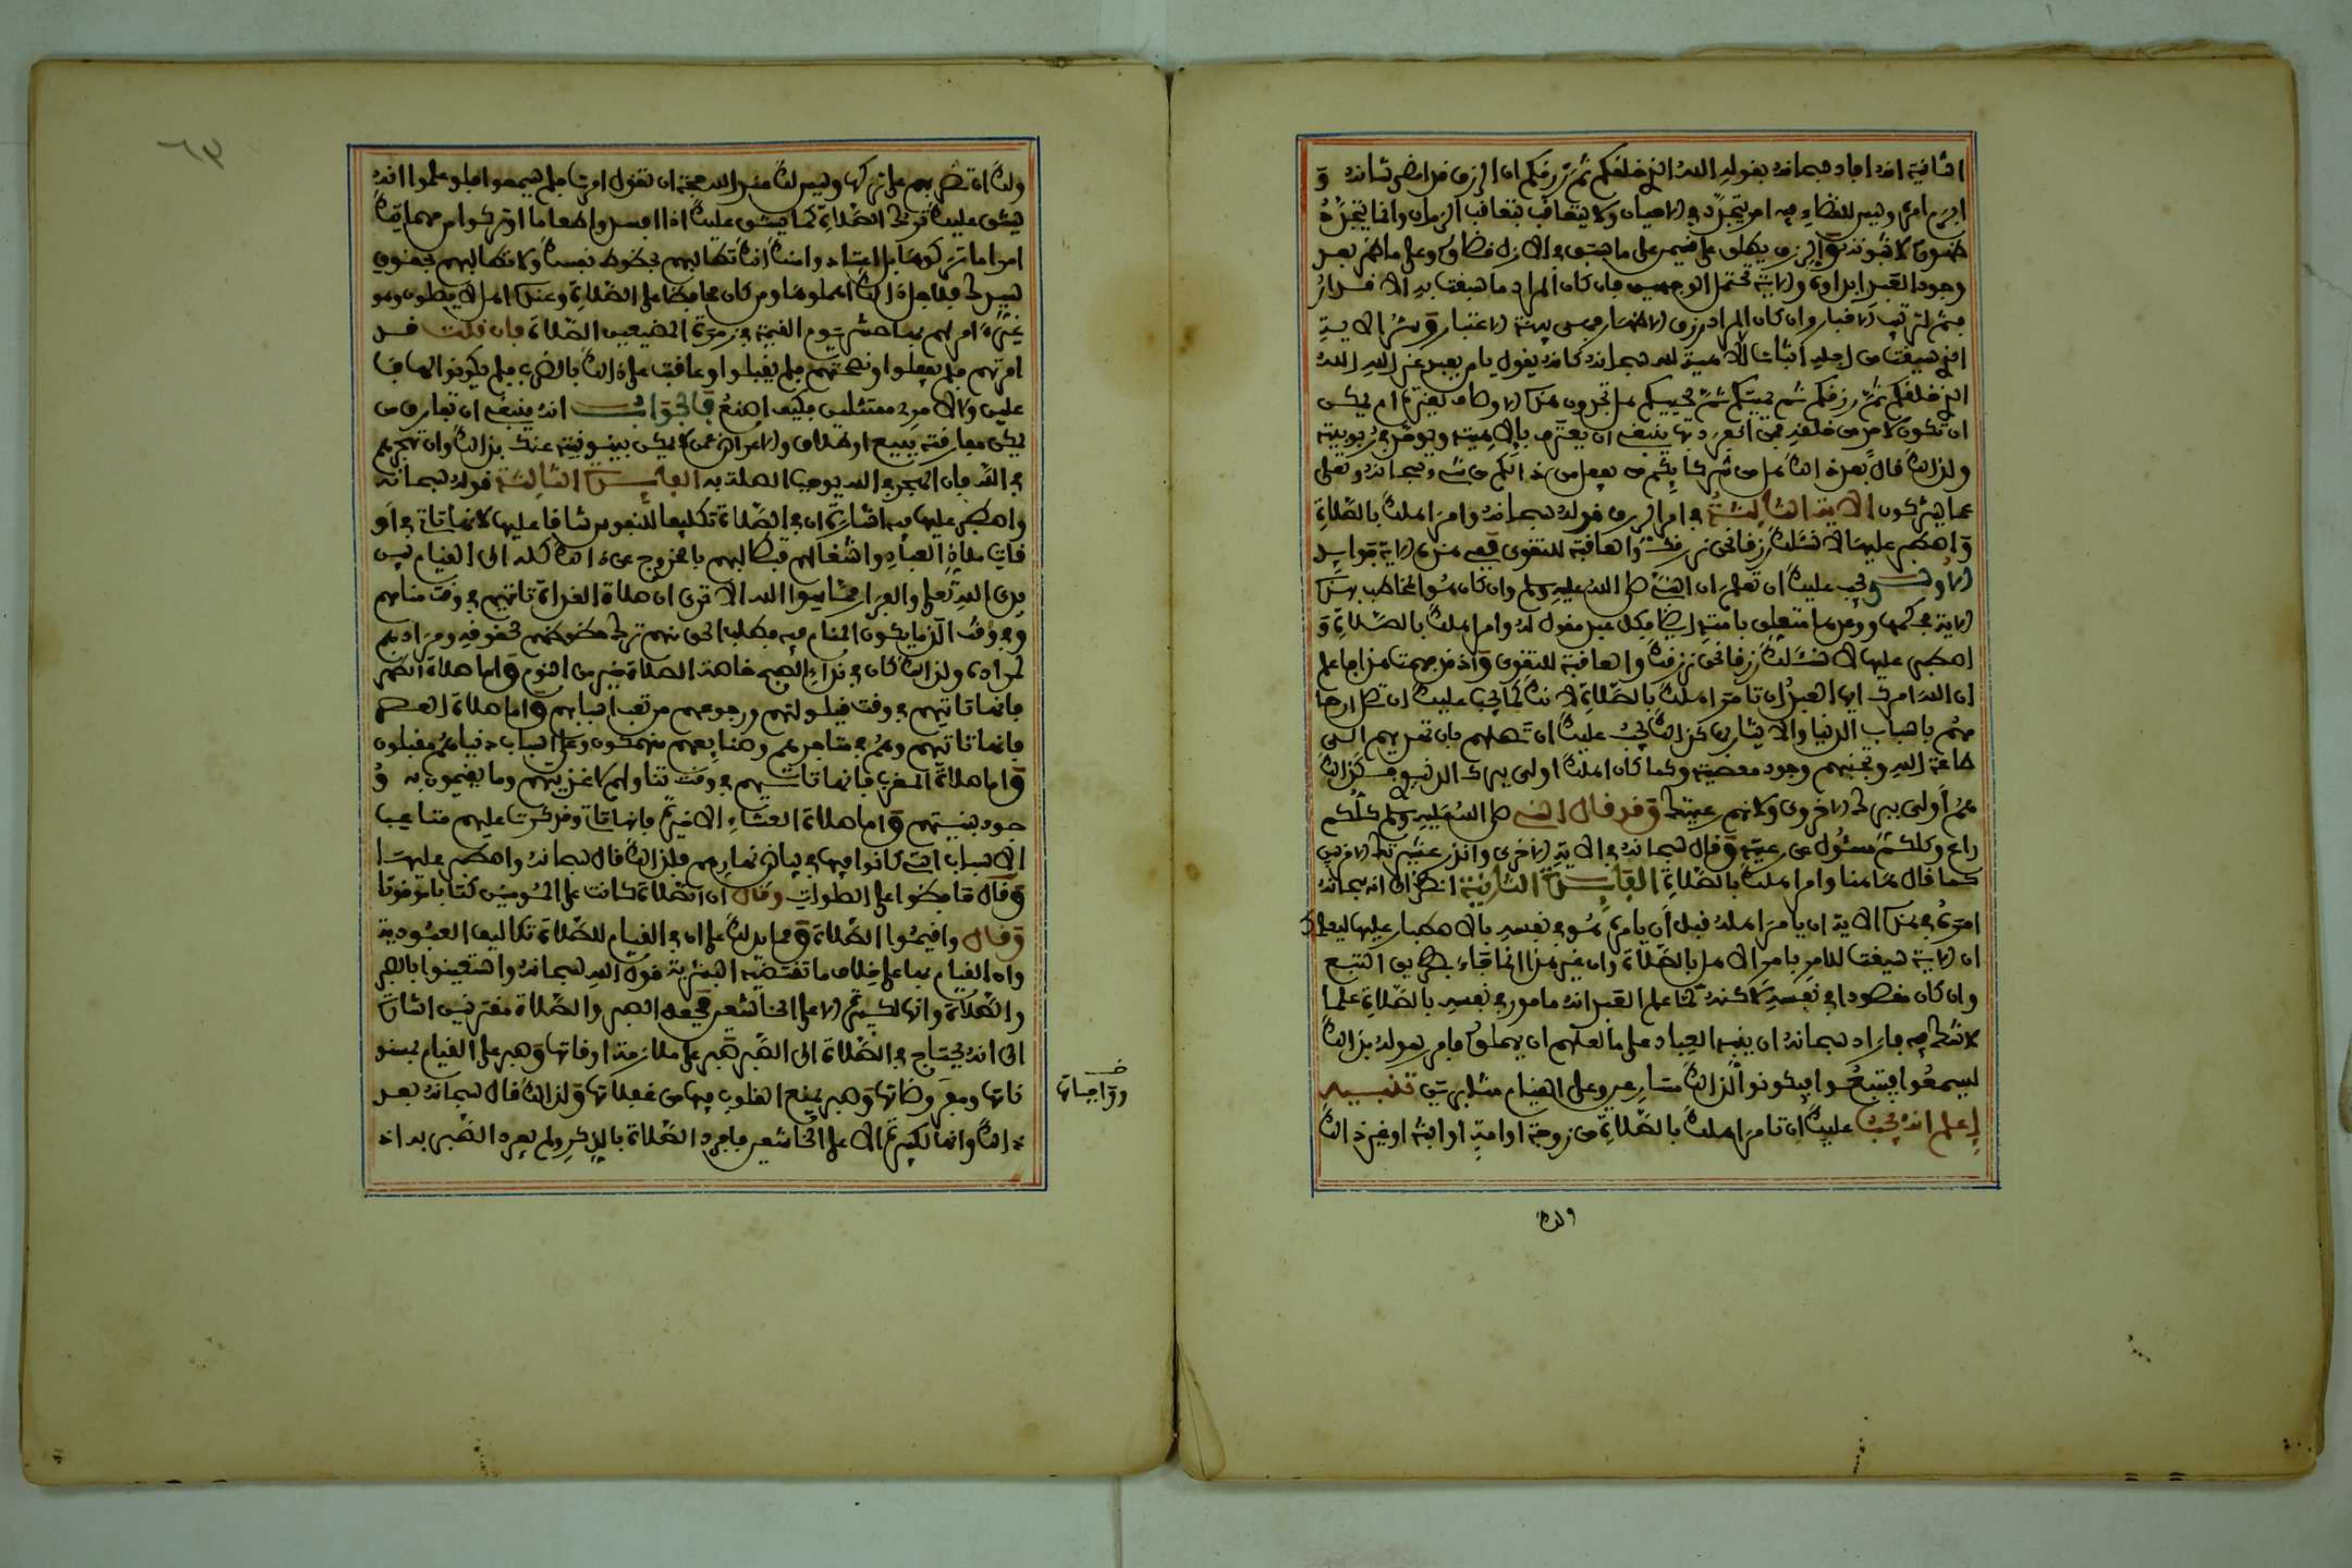 الثانية انه افاد سبحانه بقوله الله الذي خلقكم ثم رزقكم ان الرزق قد امضى شانه و
ابرم امره وليس للقضاء فيه امر يتجدد في الاحيان ولا يتعاقب بتعاقب الزمان وانما يتجدد
ظهوره لا ثبوته والرزق يطلق على قسمين على ما سبق في الازل قضاؤه وعلى ما ظهر بعد
وجود العبد ابداؤه والاية تحتمل الوجهين فان كان المراد ما سبقت به الاقدار
فثم لترتيب الاخبار وان كان المراد رزق الاظهار فهي بينة الاعتبار وسر الاية
الذي سيقت من اجله اثبات الالاهية لله سبحانه كانه يقول يا من يعبد غير الله الله
الذي خلقكم ثم رزقكم ثم يميتكم ثم يحييكم هل تجدون هذه الاوصاف لغيره ام يمكن
ان تكون لاحد من خلقه فمن انفرد بها ينبغي ان يعترف بالاهيته ويوحد في ربوبيته
ولذلك قال بعد ذلك هل من شركائكم من يفعل من ذلكم من شيء سبحانه وتعلى
عما يشركون الاية الثالثة في امر الرزق قوله سبحانه وامر اهلك بالصلاة
واصطبر عليها لا نسئلك رزقا نحن نرزقك والعاقبة للتقوى ففي هذه الاية فوايد
الاولى يجب عليك ان تعلم ان النبي صلى الله عليه وسلم وان كان هو المخاطب بهذه
الاية فحكمها ووعدها متعلق بامته ايضا فكل عبد مقول له وامر اهلك بالصلاة و
اصطبر عليها لا نسئلك رزقا نحن نرزقك والعاقبة للتقوى واذ قد فهمت هذا فاعلم
ان الله امرك ايها العبد ان تامر اهلك بالصلاة لانك كما يجب عليك ان تصل ارحا
مهم باسباب الدنيا والايثار بها كذلك يجب عليك ان تصلهم بان تهديهم الى
طاعة الله وتجنبهم وجود معصيته وكما كان اهلك اولى ببرك الدنيوي كذلك
هم اولى ببرك الاخروي ولانهم رعيتك وقد قال النبي صلى الله عليه وسلم كلكم
راع وكلكم مسئول عن رعيته وقال سبحانه في الاية الاخرى وانذر عشيرتك الاقربين
كما قال هاهنا وامر اهلك بالصلاة الفايدة الثانية انظر الى انه سبحانه
امره في هذه الاية ان يامر اهله قبل ان يامره هو في نفسه بالاصطبار عليها ليعلمك
ان الاية سيقت للامر بامر الاهل بالصلاة وان غير هذا انما جاء بطريق التبع
وان كان مقصودا في نفسه لاكنه لما علم العبد انه مامور في نفسه بالصلاة علما
لا شك فيه فاراد سبحانه ان ينبه العباد على ما لعلهم ان يهملوه فامر رسوله بذلك
ليسمعوا فيتبعوا فيكونوا لذلك مسارعين وعلى القيام مثابرين تنبيه
اعلم انه يجب عليك ان تامر اهلك بالصلاة من زوجة او امة او ابنة او غير ذلك
ولك
ولك ان تضربهم على تركها وليس لك عند الله حجة ان تقول امرت فلم يسمعوا فلو علموا انه
يشق عليك ترك الصلاة كما يشق عليك اذا افسدوا طعاما او تركوا من مهماتك
امرا ما تركوها بل اعتادوا منك انك تطالبهم بحظوظ نفسك ولا تطالبهم بحقوق
سيدك فلاجل ذلك اهملوها ومن كان محافظا على الصلاة وعنده اهل لا يصلون وهو
غير امر لهم بها حشر يوم القيمة في زمرة المضيعين الصلاة فان قلت قد
امرتهم فلم يفعلوا ونصحتهم فلم يقبلوا وعاقبت على ذلك بالضرب فلم يكونوا له فا
علين ولامري ممتثلين فكيف اصنع فالجواب انه ينبغي ان تفارق من
يمكن مفارقته ببيع او طلاق والاعراض عن من لا يمكن بينونته عنك بذلك وان تهجرهم
في الله فان الهجر في الله يوجب الصلة به الفايدة الثالثة قوله سبحانه
واصطبر عليها فيه اشارة ان في الصلاة تكليفا للنفوس شاقا عليها لانها تاتي في او
قات ملاذ العباد واشغالهم فتطالبهم بالخروج عن ذلك كله الى القيام بين
يدي الله تعلى والفراغ مما سوا الله الا ترى ان صلاة الغداة تاتيهم في وقت منامهم
في وقت الذ ما يكون المنام فيه فطلب الحق منهم ترك حظوظهم لحقوقه ومرادهم
لمراده ولذلك كان في نداء الصبح خاصة الصلاة خير من النوم واما صلاة الظهر
فانها تاتيهم في وقت قيلولتهم ورجوعهم من تعب اسبابهم واما صلاة العصر
فانها تاتيهم وهم في متاجرهم وصنايعهم منهمكون وعلى اسباب دنياهم مقبلون
واما صلاة المغرب فانها تاتيهم في وقت تناولهم لاغذيتهم وما يقيمون به و
جود بنيتهم واما صلاة العشاء الاخيرة فانها تاتي وقد كثرت عليهم متاعب
الاسباب التي كانوا فيها في بياض نهارهم فلذلك قال سبحانه واصطبر عليها
وقال حافظوا على الصلوات وقال ان الصلاة كانت على المومنين كتابا موقوتا
وقال واقيموا الصلاة ومما يدلك على ان في القيام للصلاة تكاليف العبودية
وان القيام بها على خلاف ما تقتضيه البشرية قول الله سبحانه واستعينوا بالصبر
والصلاة وانها لكبيرة الا على الخاشعين فجعل الصبر والصلاة مقترنين اشارة
الى انه يحتاج في الصلاة الى الصبر صبر على ملازمة اوقاتها وصبر على القيام بمسنو
ناتها ومفروضاتها وصبر يمنع القلوب فيها من غفلاتها ولذلك قال سبحانه بعد
ذلك وانها لكبيرة الا على الخاشعين فافرد الصلاة بالذكر ولم يفرد الصبر به اذ
خ
وواجباتها